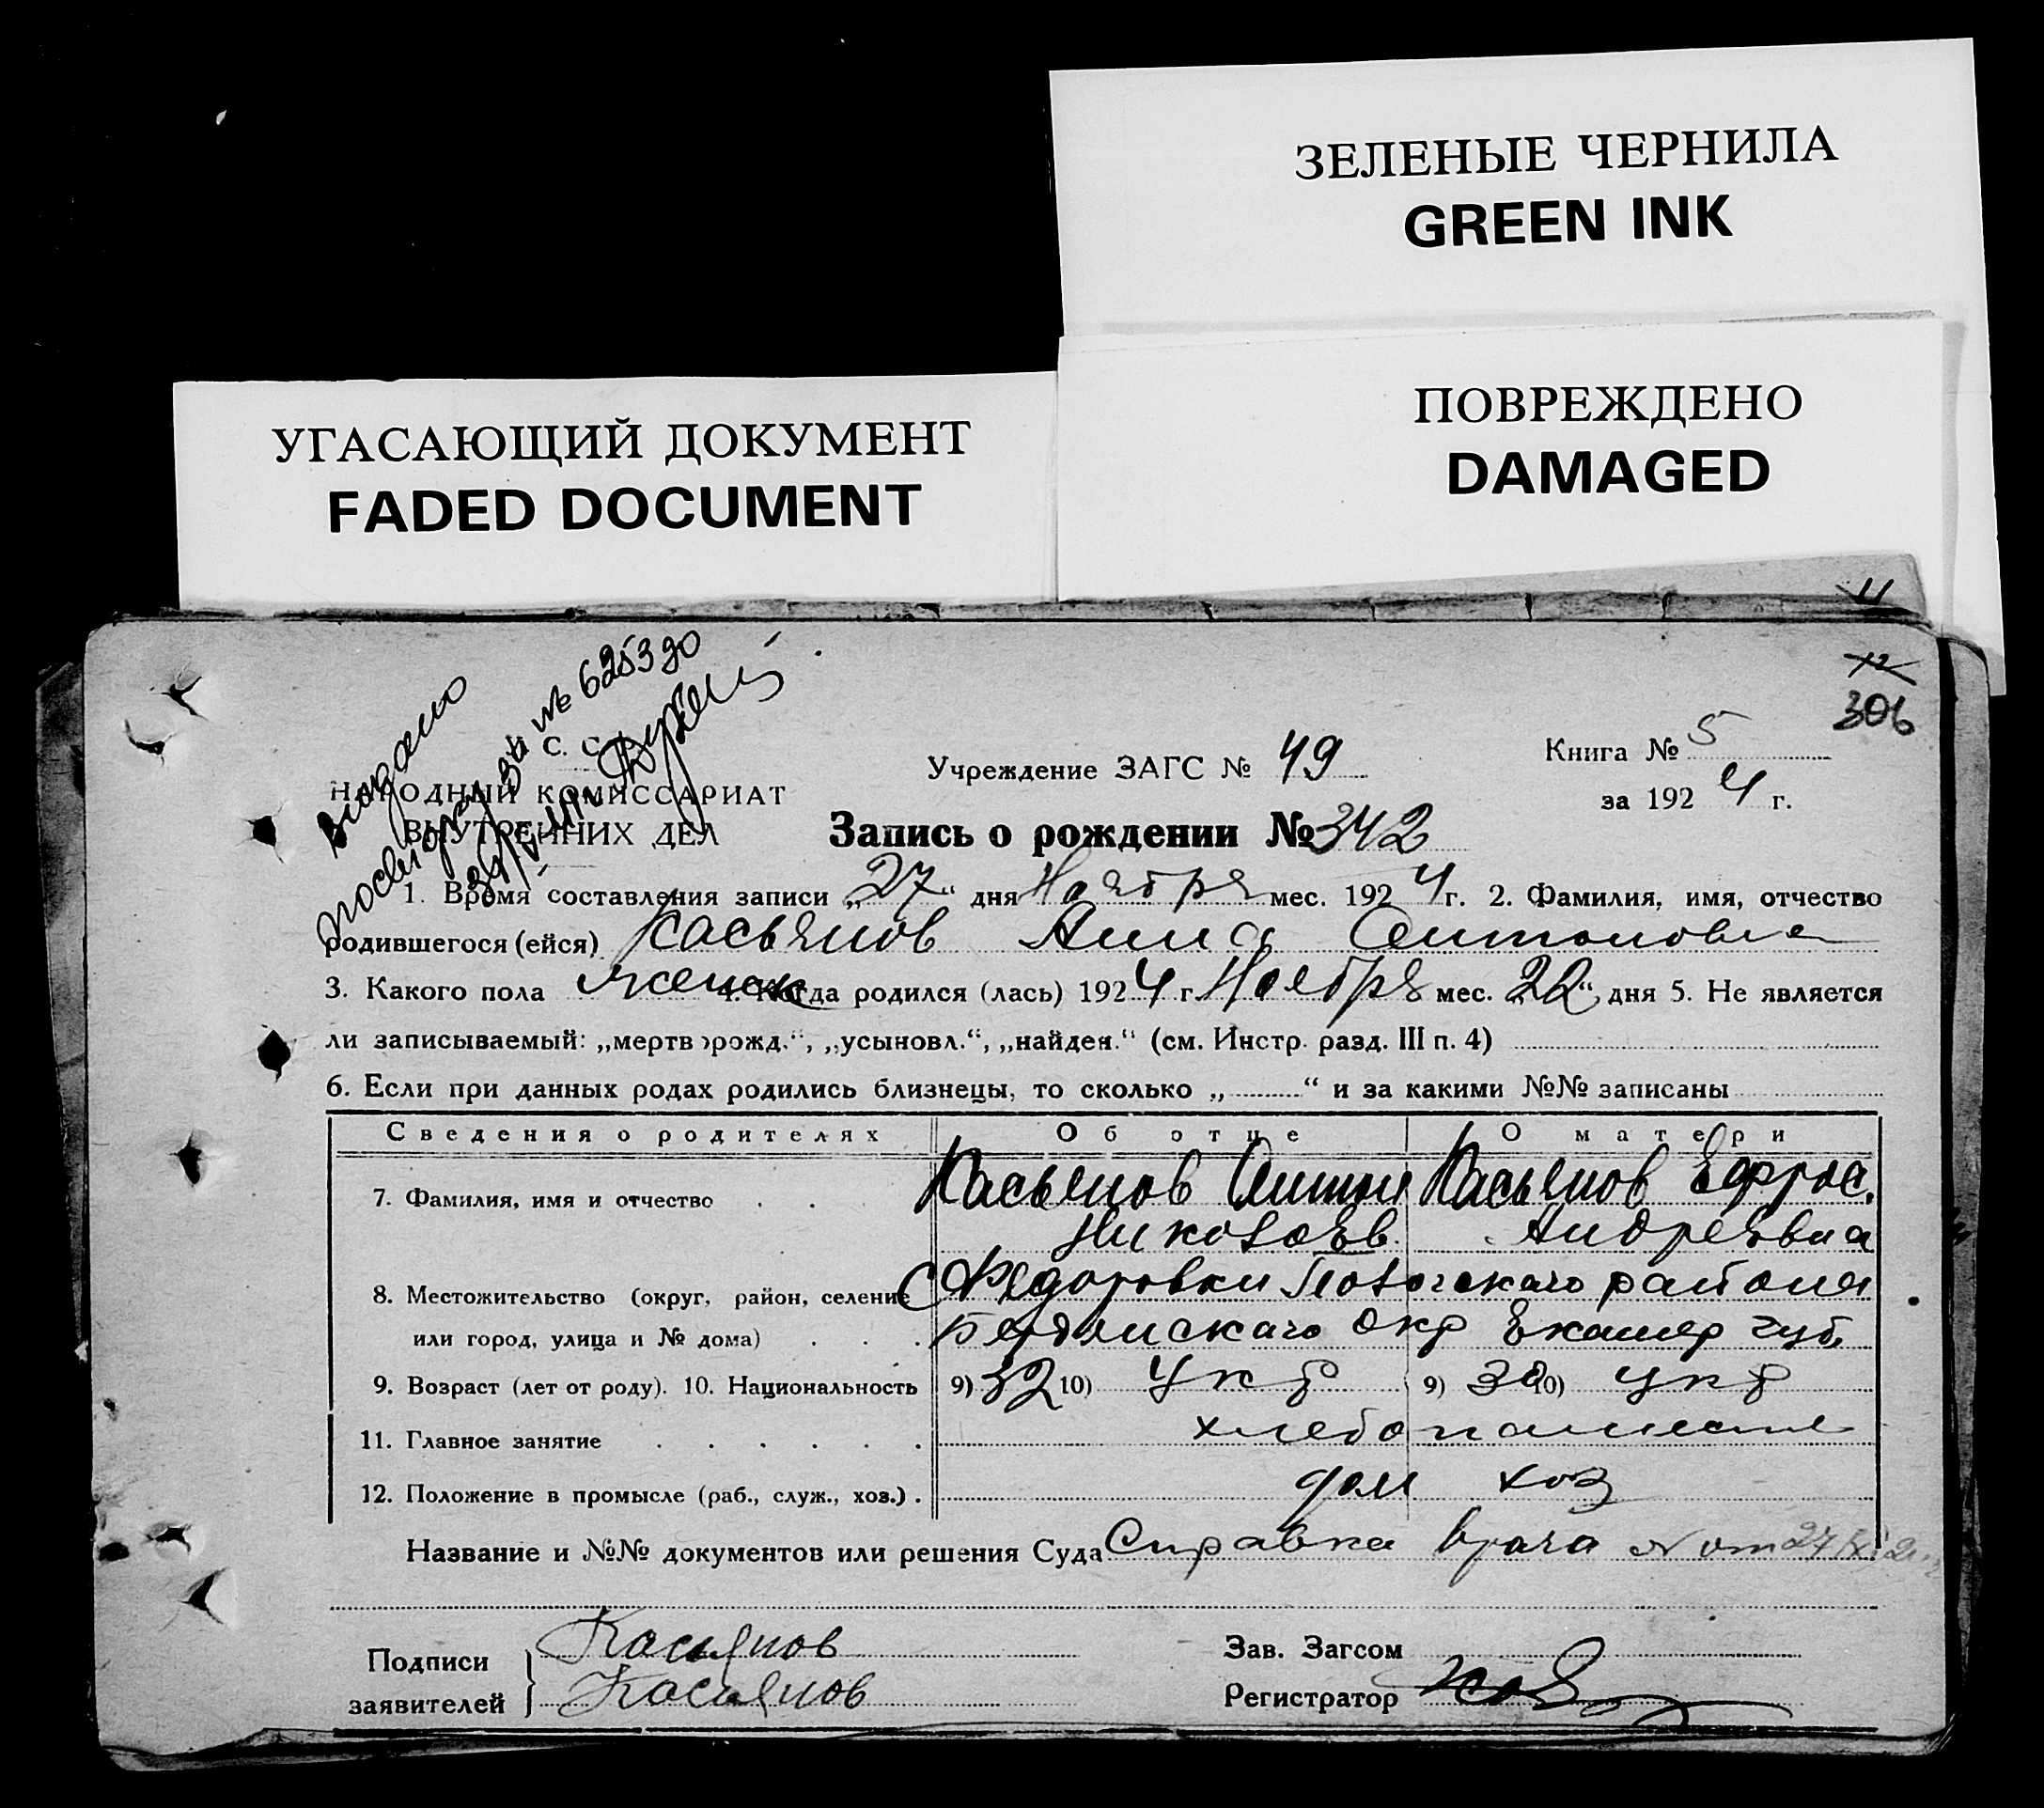 ЗЕЛЕНЫЕ ЧЕРНИЛА
GREEN INK
ПОВРЕЖДЕНО
DAMAGED
УГАСАЮЩИЙ ДОКУМЕНТ
FADED DOCUMENT
11
12
306
Видано
№ 625390
С. С.
НАРОДНЫЙ КОМИССАРИАТ
ВНУТРЕННИХ ДЕЛ
Учреждение ЗАГС № 49
Книга № 5
за 1924 г.
Запись о рождении № 342
1. Время составления записи „27“ дня Ноября мес. 1924 г. 2. Фамилия, имя, отчество
родившегося (ейся) Касьянов Анна Антоновна
3. Какого пола женск 4. Когда родился (лась) 1924 г. Ноября мес. „22“ дня 5. Не является
ли записываемый: „мертворожд.“, „усыновл.“, „найден.“ (см. Инстр. разд. III п. 4)
6. Если при данных родах родились близнецы, то сколько „ “ и за какими №№ записаны
Сведения о родителях Об отце О матери
7. Фамилия, имя и отчество . . Касьянов Антон Касьянов Ефрос.
Николаев. Андреевна
8. Местожительство (округ, район, селение С Федоровки района
или город, улица и № дома) . . . Бердянскаго Окр Екатер губ,
9. Возраст (лет от роду). 10. Национальность 9) 32 10) Укр 9) 30 10) укр
11. Главное занятие . . . . . . хлебопашест
12. Положение в промысле (раб., служ., хоз.) . дом хоз
Название и №№ документов или решения Суда Справка врача № от 27/XI
Подписи
заявителей
Касьянов
Касьянов
Зав. Загсом
Регистратор